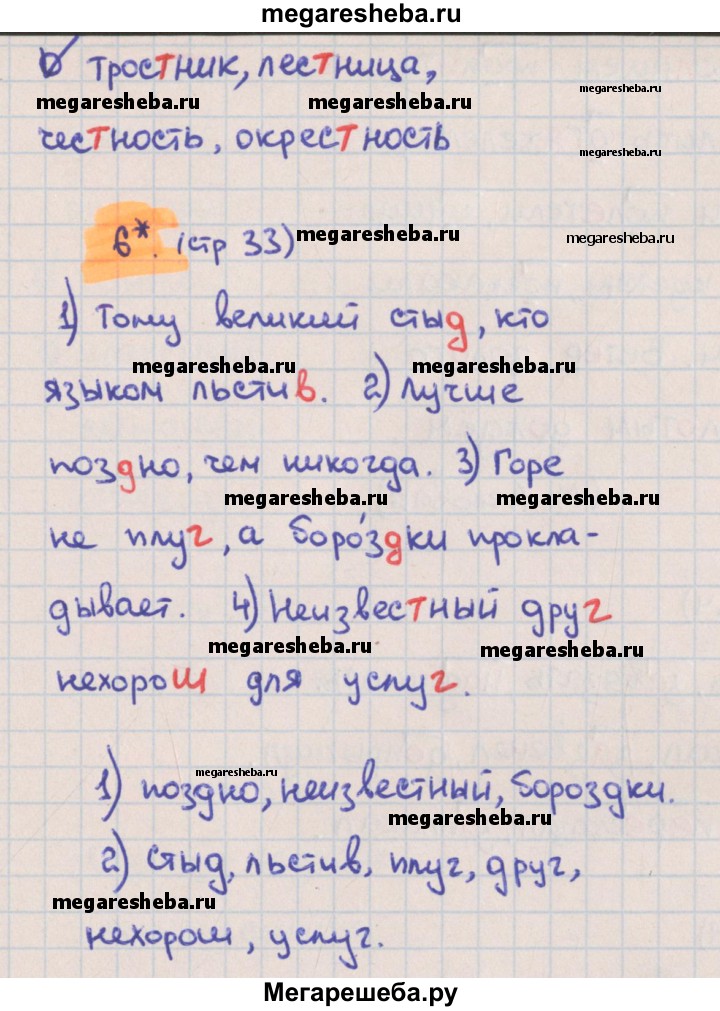 megaresheba.ru
тростник, лестница,
megaresheba.ru megaresheba.ru megaresheba.ru
честность, окрестность
megaresheba.ru
6*. (стр 33) megaresheba.ru megaresheba.ru
1) Тому великий стыд, кто
megaresheba.ru megaresheba.ru
языком льстив. 2) Лучше
поздно, чем никогда. 3) Горе
megaresheba.ru megaresheba.ru
не плуг, а боро́здки прокла-
дывает. 4) Неизвестный друг
megaresheba.ru megaresheba.ru
нехорош для услуг.
megaresheba.ru
1) поздно, неизвестный, бороздки.
megaresheba.ru
2) стыд, льстив, плуг, друг,
megaresheba.ru
нехорош, услуг.
Мегарешеба.ру